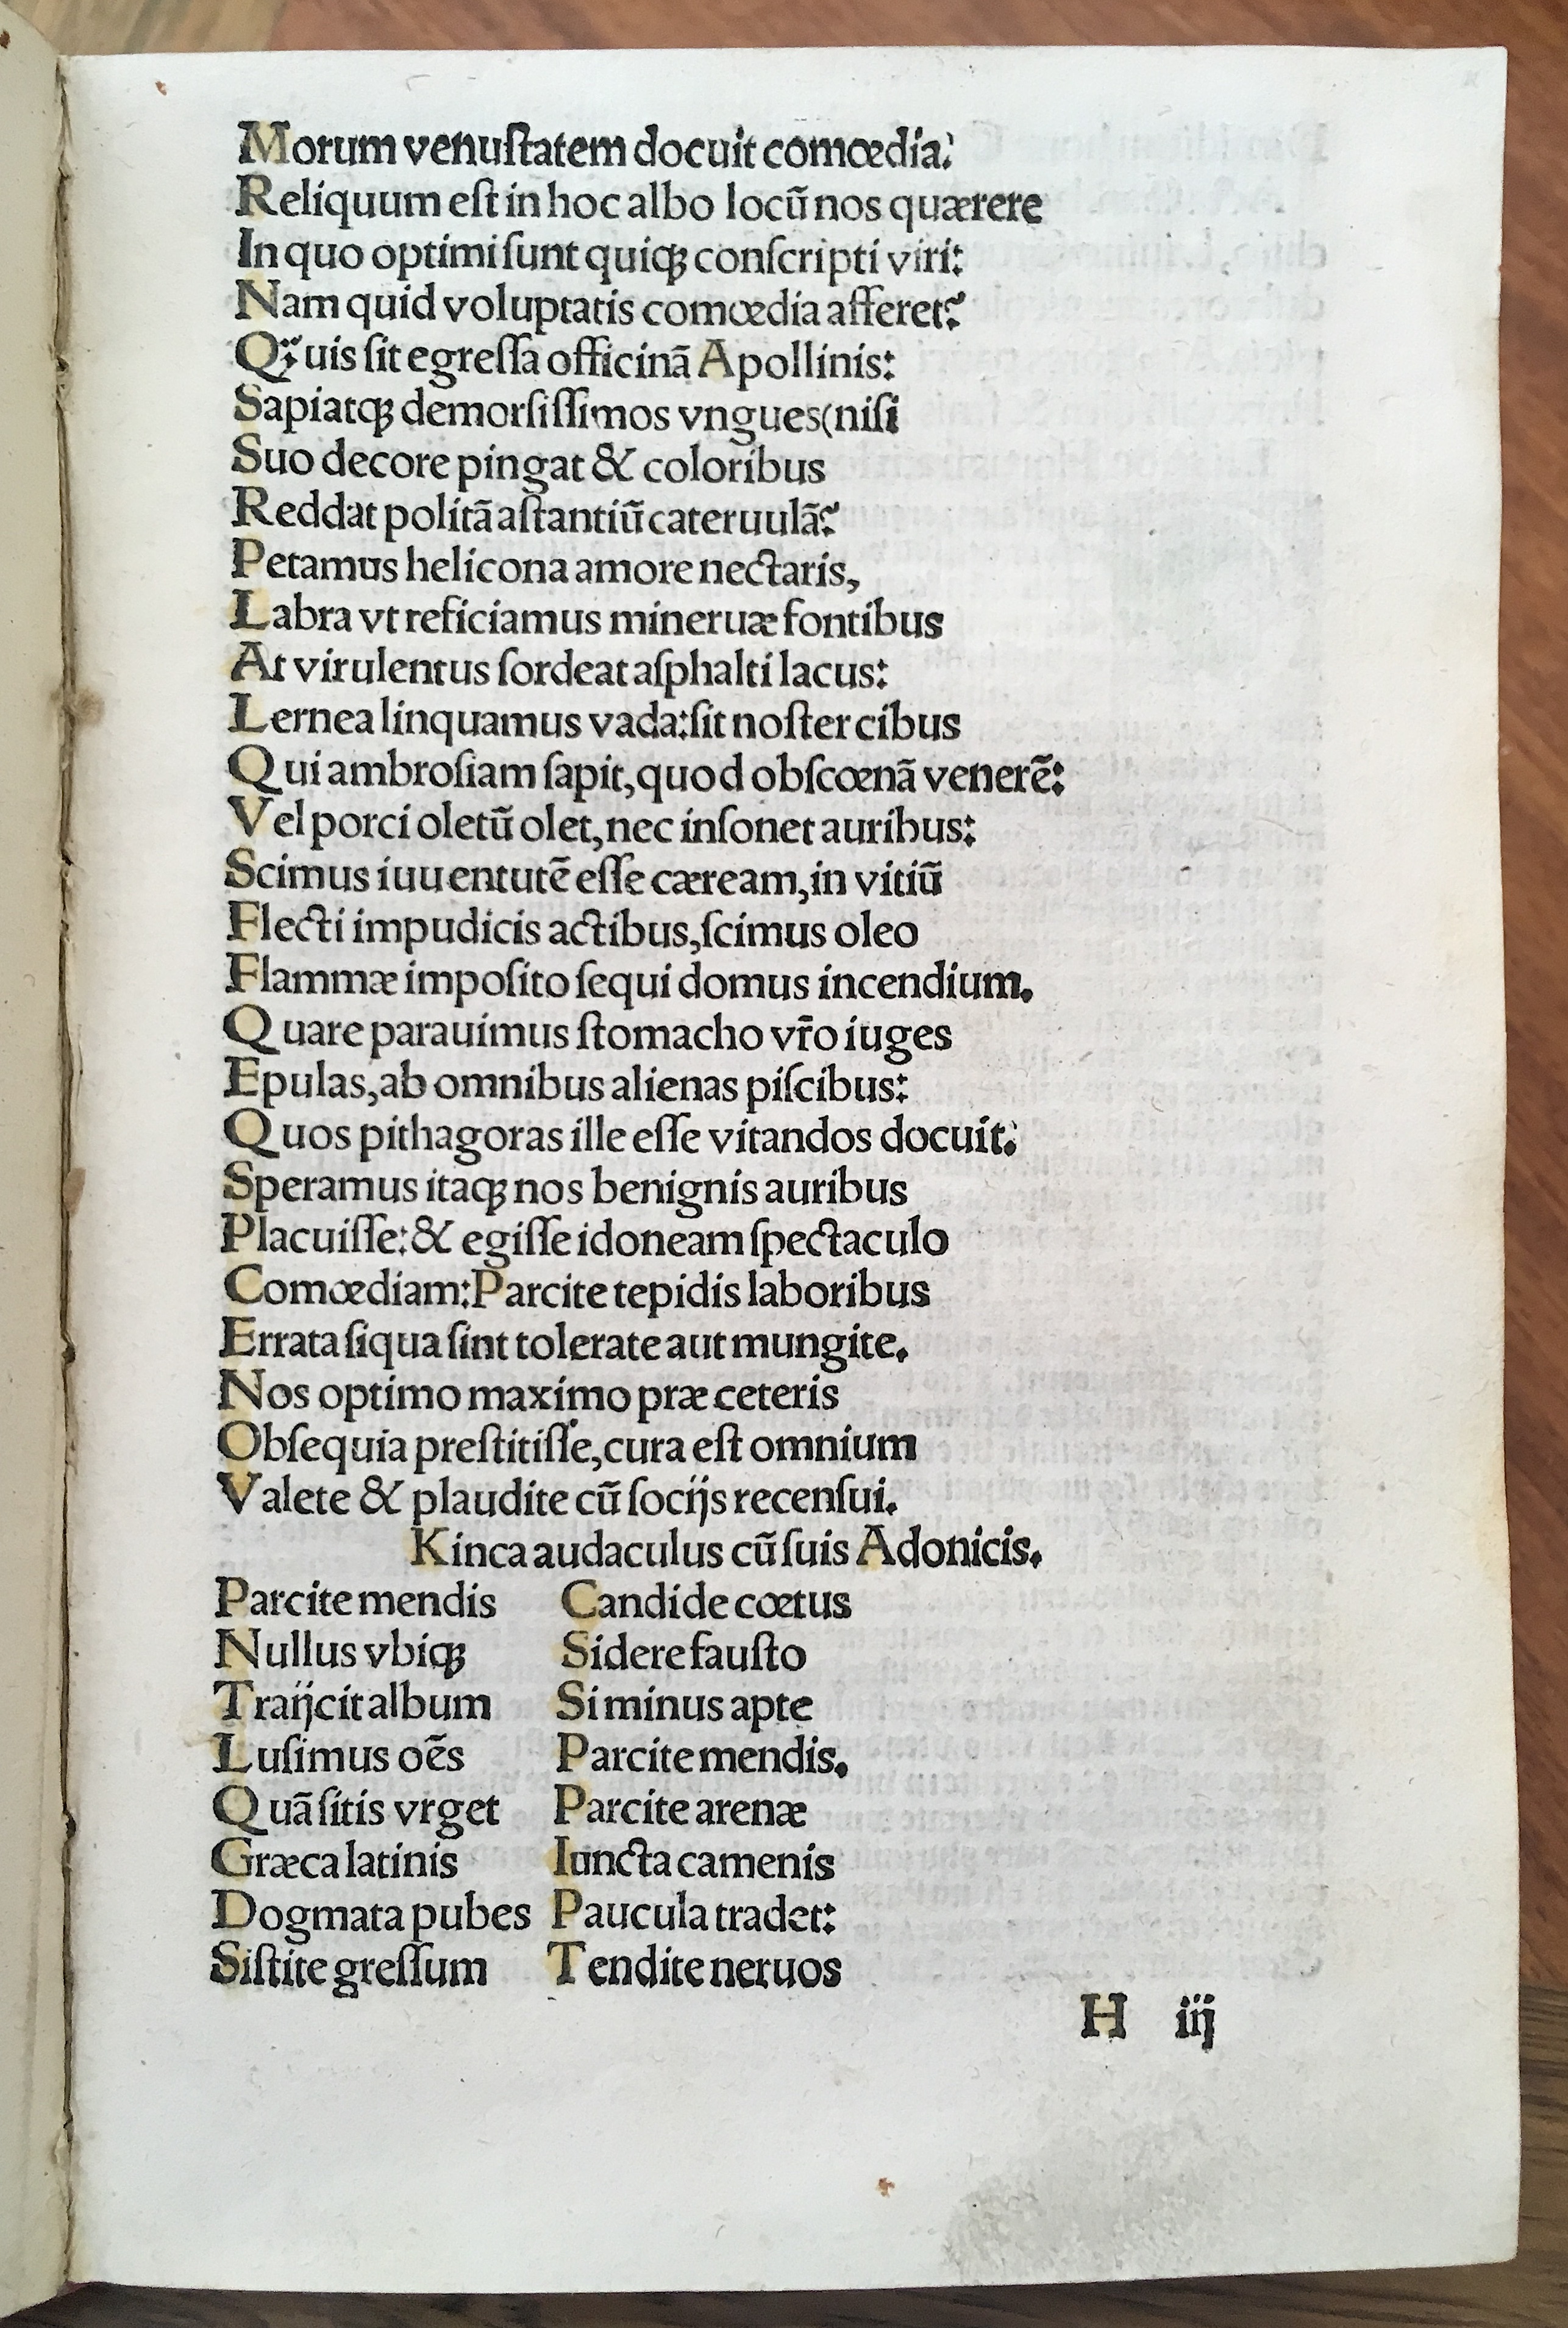 Morum venuſtatem docuit comœdia.
Reliquum eſt in hoc albo locũ nos quærere
In quo optimi ſunt quiqꝫ conſcripti viri:
Nam quid voluptatis comœdia afferet?
Qꝫuis ſit egreſſa officinã Apollinis:
Sapiatqꝫ demorſiſſimos vngues(niſi
Suo decore pingat & coloribus
Reddat politã aſtantiũ cateruulã?
Petamus helicona amore nectaris,
Labra vt reficiamus mineruæ fontibus
At virulentus ſordeat aſphalti lacus:
Lernea linquamus vada:ſit noſter cibus
Qui ambroſiam ſapit,quod obſcœnã venerẽ:
Vel porci oletũ olet,nec inſonet auribus:
Scimus iuuentutẽ eſſe cæream,in vitiũ
Flecti impudicis actibus,ſcimus oleo
Flammæ impoſito ſequi domus incendium.
Quare parauimus ſtomacho vr̃o iuges
Epulas,ab omnibus alienas piſcibus:
Quos pithagoras ille eſſe vitandos docuit.
Speramus itaqꝫ nos benignis auribus
Placuiſſe:& egiſſe idoneam ſpectaculo
Comœdiam:Parcite tepidis laboribus
Errata ſiqua ſint tolerate aut mungite.
Nos optimo maximo præ ceteris
Obſequia preſtitiſſe,cura eſt omnium
Valete & plaudite cũ ſocijs recenſui.
Kinca audaculus cũ ſuis Adonicis.
Parcite mendis Candide cœtus
Nullus vbiqꝫ Sidere fauſto
Traijcit album Si minus apte
Luſimus oẽs Parcite mendis.
Quã ſitis vrget Parcite arenæ
Græca latinis Iuncta camenis
Dogmata pubes Paucula tradet:
Siſtite greſſum Tendite neruos
H iij